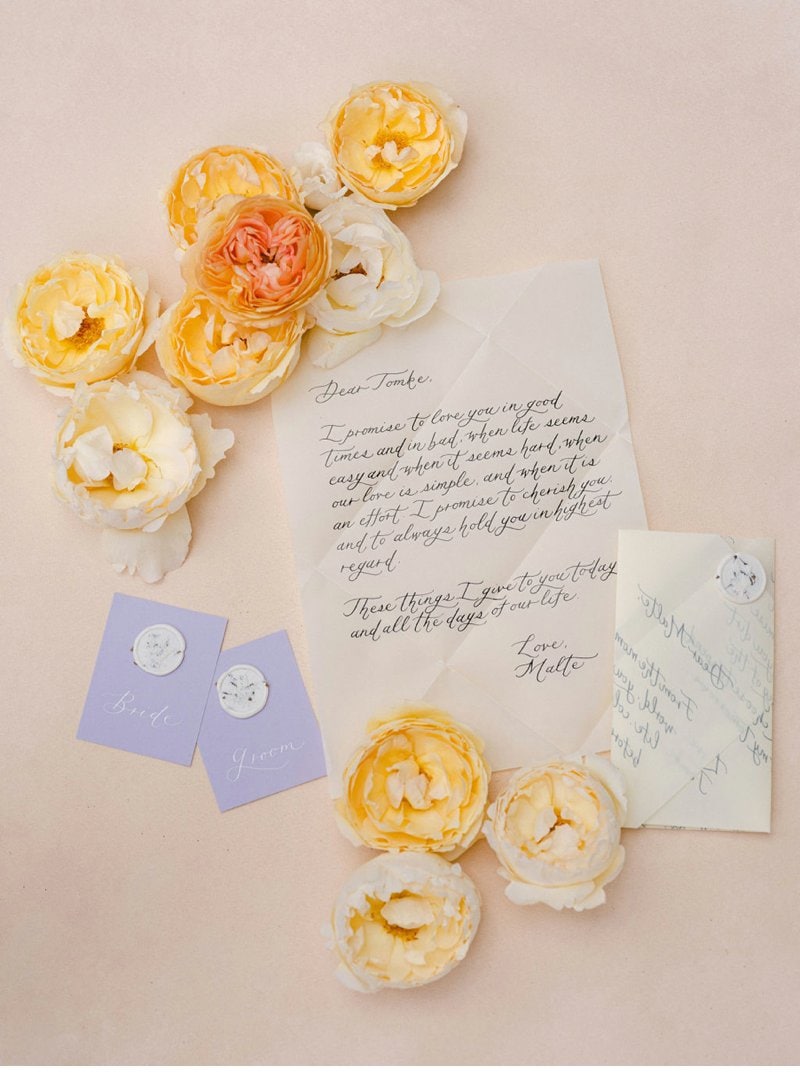 Dear Tomke,
I promise to love you in good
times and in bad, when life seems
easy and when it seems hard, when
our love is simple, and when it is
an effort. I promise to cherish you,
and to always hold you in highest
regard.
These things I give to you today
and all the days of our life.
Love,
Malte
Bride
Groom
Dear Malte,
From the mom
world, you
life. 
before